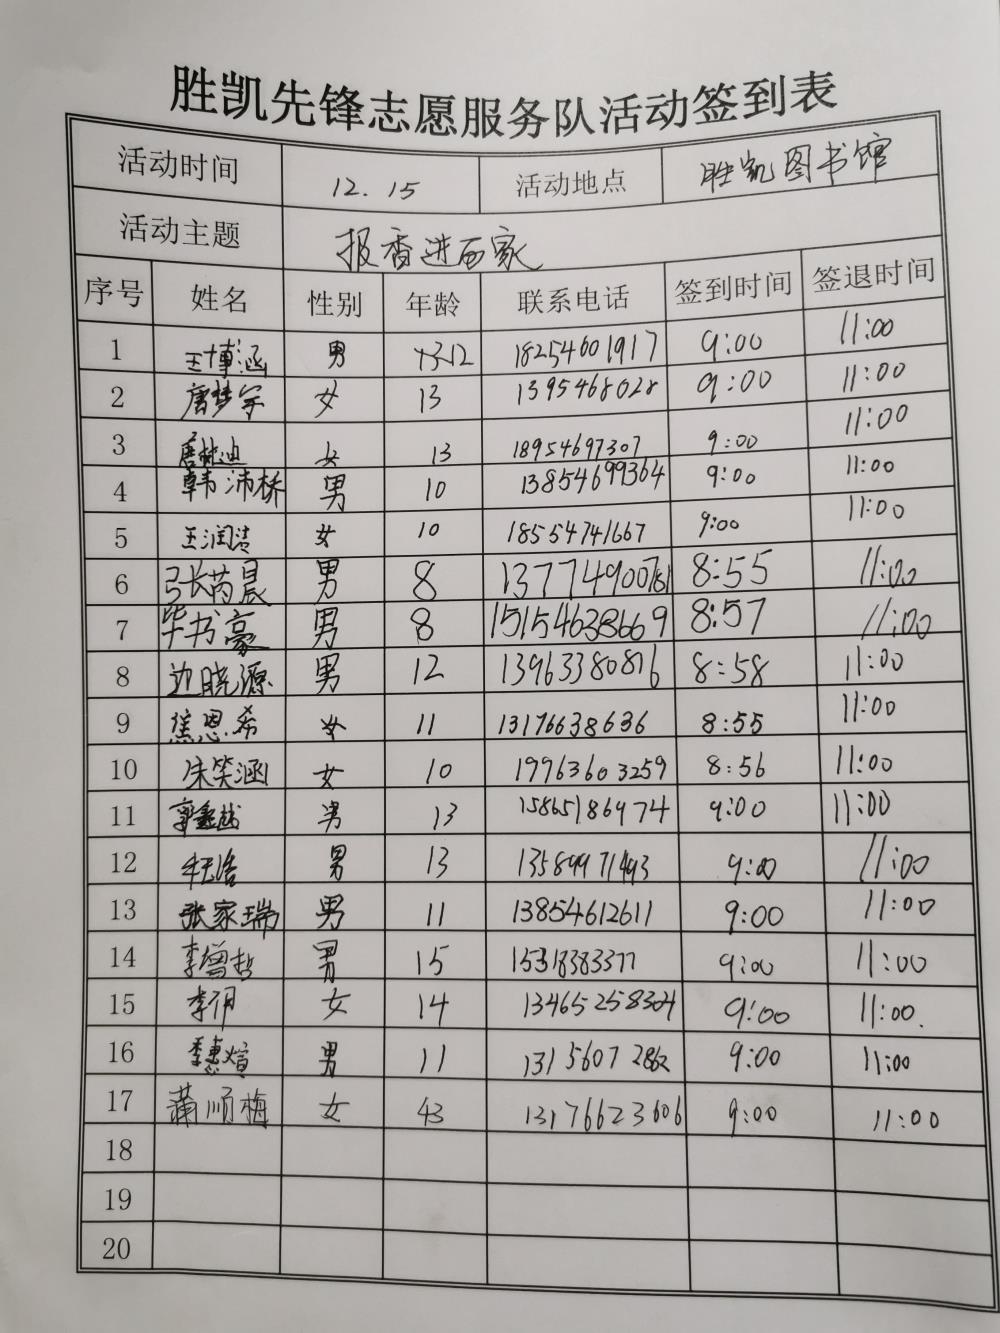 胜凯先锋志愿服务队活动签到表
活动时间 12.15 活动地点 胜凯图书馆
活动主题 报香进百家
序号 姓名 性别 年龄 联系电话 签到时间 签退时间
1 王博涵 男 12 18254601917 9:00 11:00
2 唐梦宇 女 13 1395468028 9:00 11:00
3 唐林迪 女 13 18954697307 9:00 11:00
4 韩沛桥 男 10 13854699364 9:00 11:00
5 王润洁 女 10 18554741667 9:00 11:00
6 张芮晨 男 8 8:55 11:00
7 毕书豪 男 8 15154638669 8:57 11:00
8 边晓源 男 12 13963380816 8:58 11:00
9 焦恩希 女 11 13176638636 8:55 11:00
10 朱笑涵 女 10 19963603259 8:56 11:00
11 郭鑫越 男 13 15865186974 9:00 11:00
12 男 13 13589971493 9:00 11:00
13 张家瑞 男 11 13854612611 9:00 11:00
14 李曾哲 男 15 15318383377 9:00 11:00
15 女 14 13465258304 9:00 11:00.
16 男 11 13156072862 9:00 11:00
17 蒲顺梅 女 43 13176623606 9:00 11:00
18
19
20